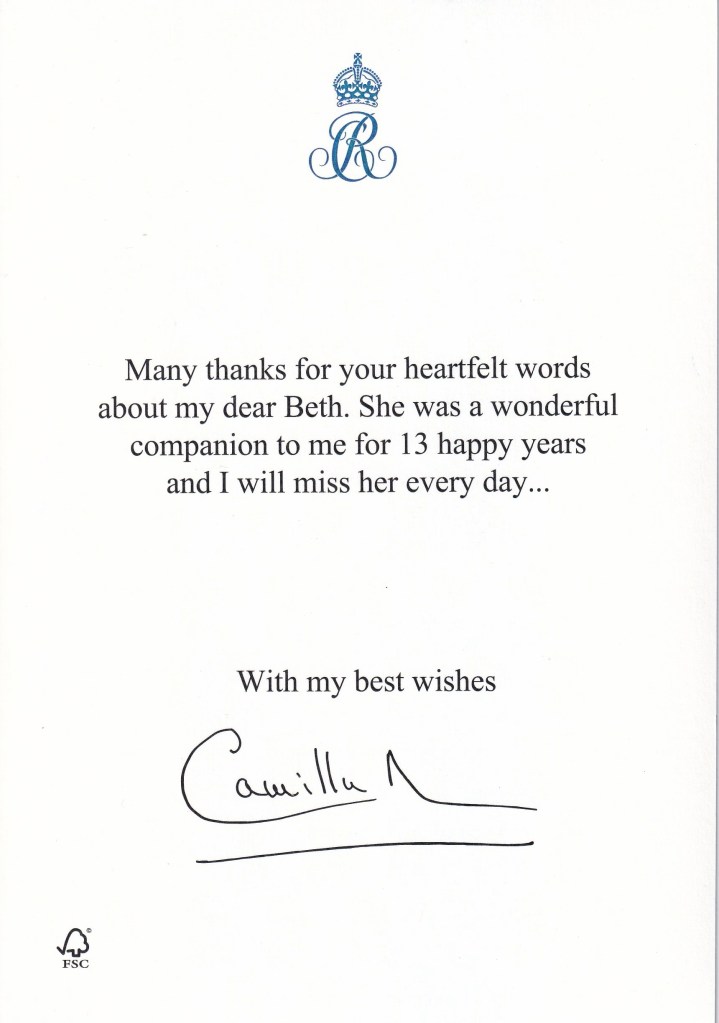 CR
Many thanks for your heartfelt words
about my dear Beth. She was a wonderful
companion to me for 13 happy years
and I will miss her every day...
With my best wishes
Camilla R
®
FSC